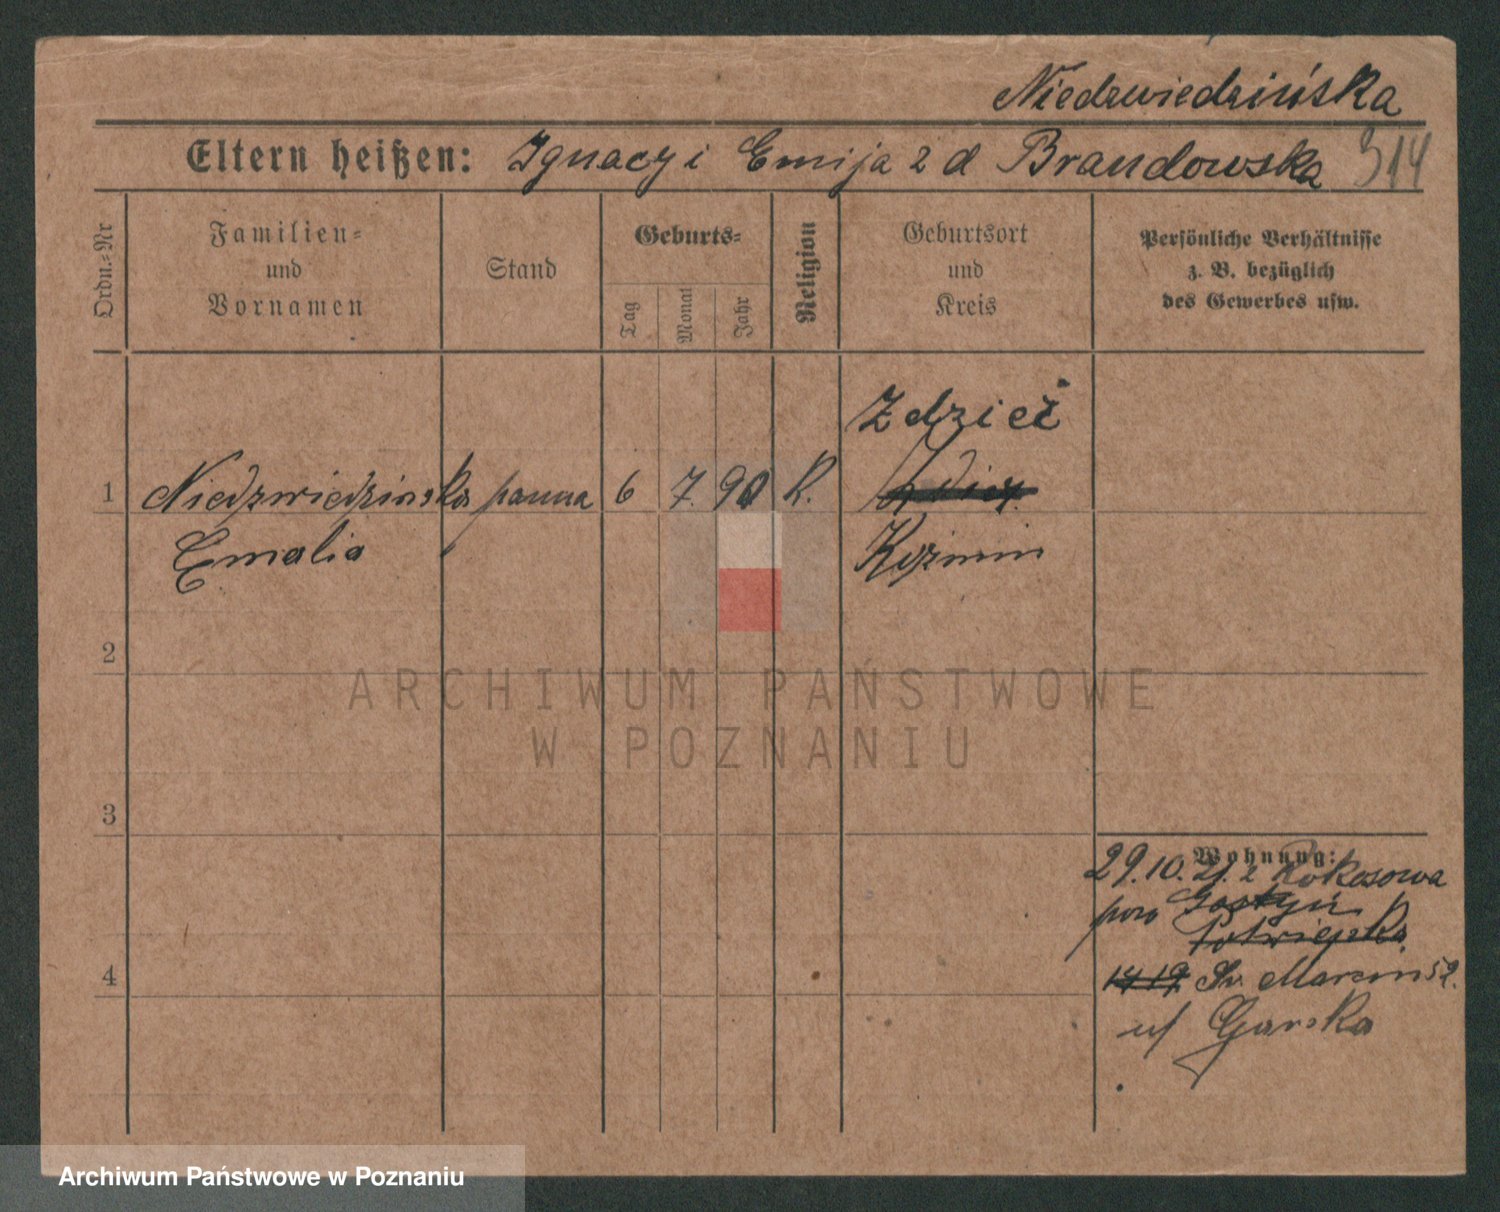 Niedzwiedzińska
Eltern heißen: Ignacy i Emija z d Brandowska 314
Ordn.-Nr
Familien-
und
Vornamen
Stand
Geburts-
Tag
Monat
Jahr
Religion
Geburtsort
und
Kreis
Persönliche Verhältnisse
z. B. bezüglich
des Gewerbes usw.
Zdzież
1 Niedzwiedzinska panna 6 7. 90 K.
Emalia
Kozmin
2
ARCHIWUM PAŃSTWOWE
W POZNANIU
3
Wohnung:
29.10. 21. z Rokosowa
pow Gostyń
4
Św. Marcin 52.
u/ Garska
Archiwum Państwowe w Poznaniu